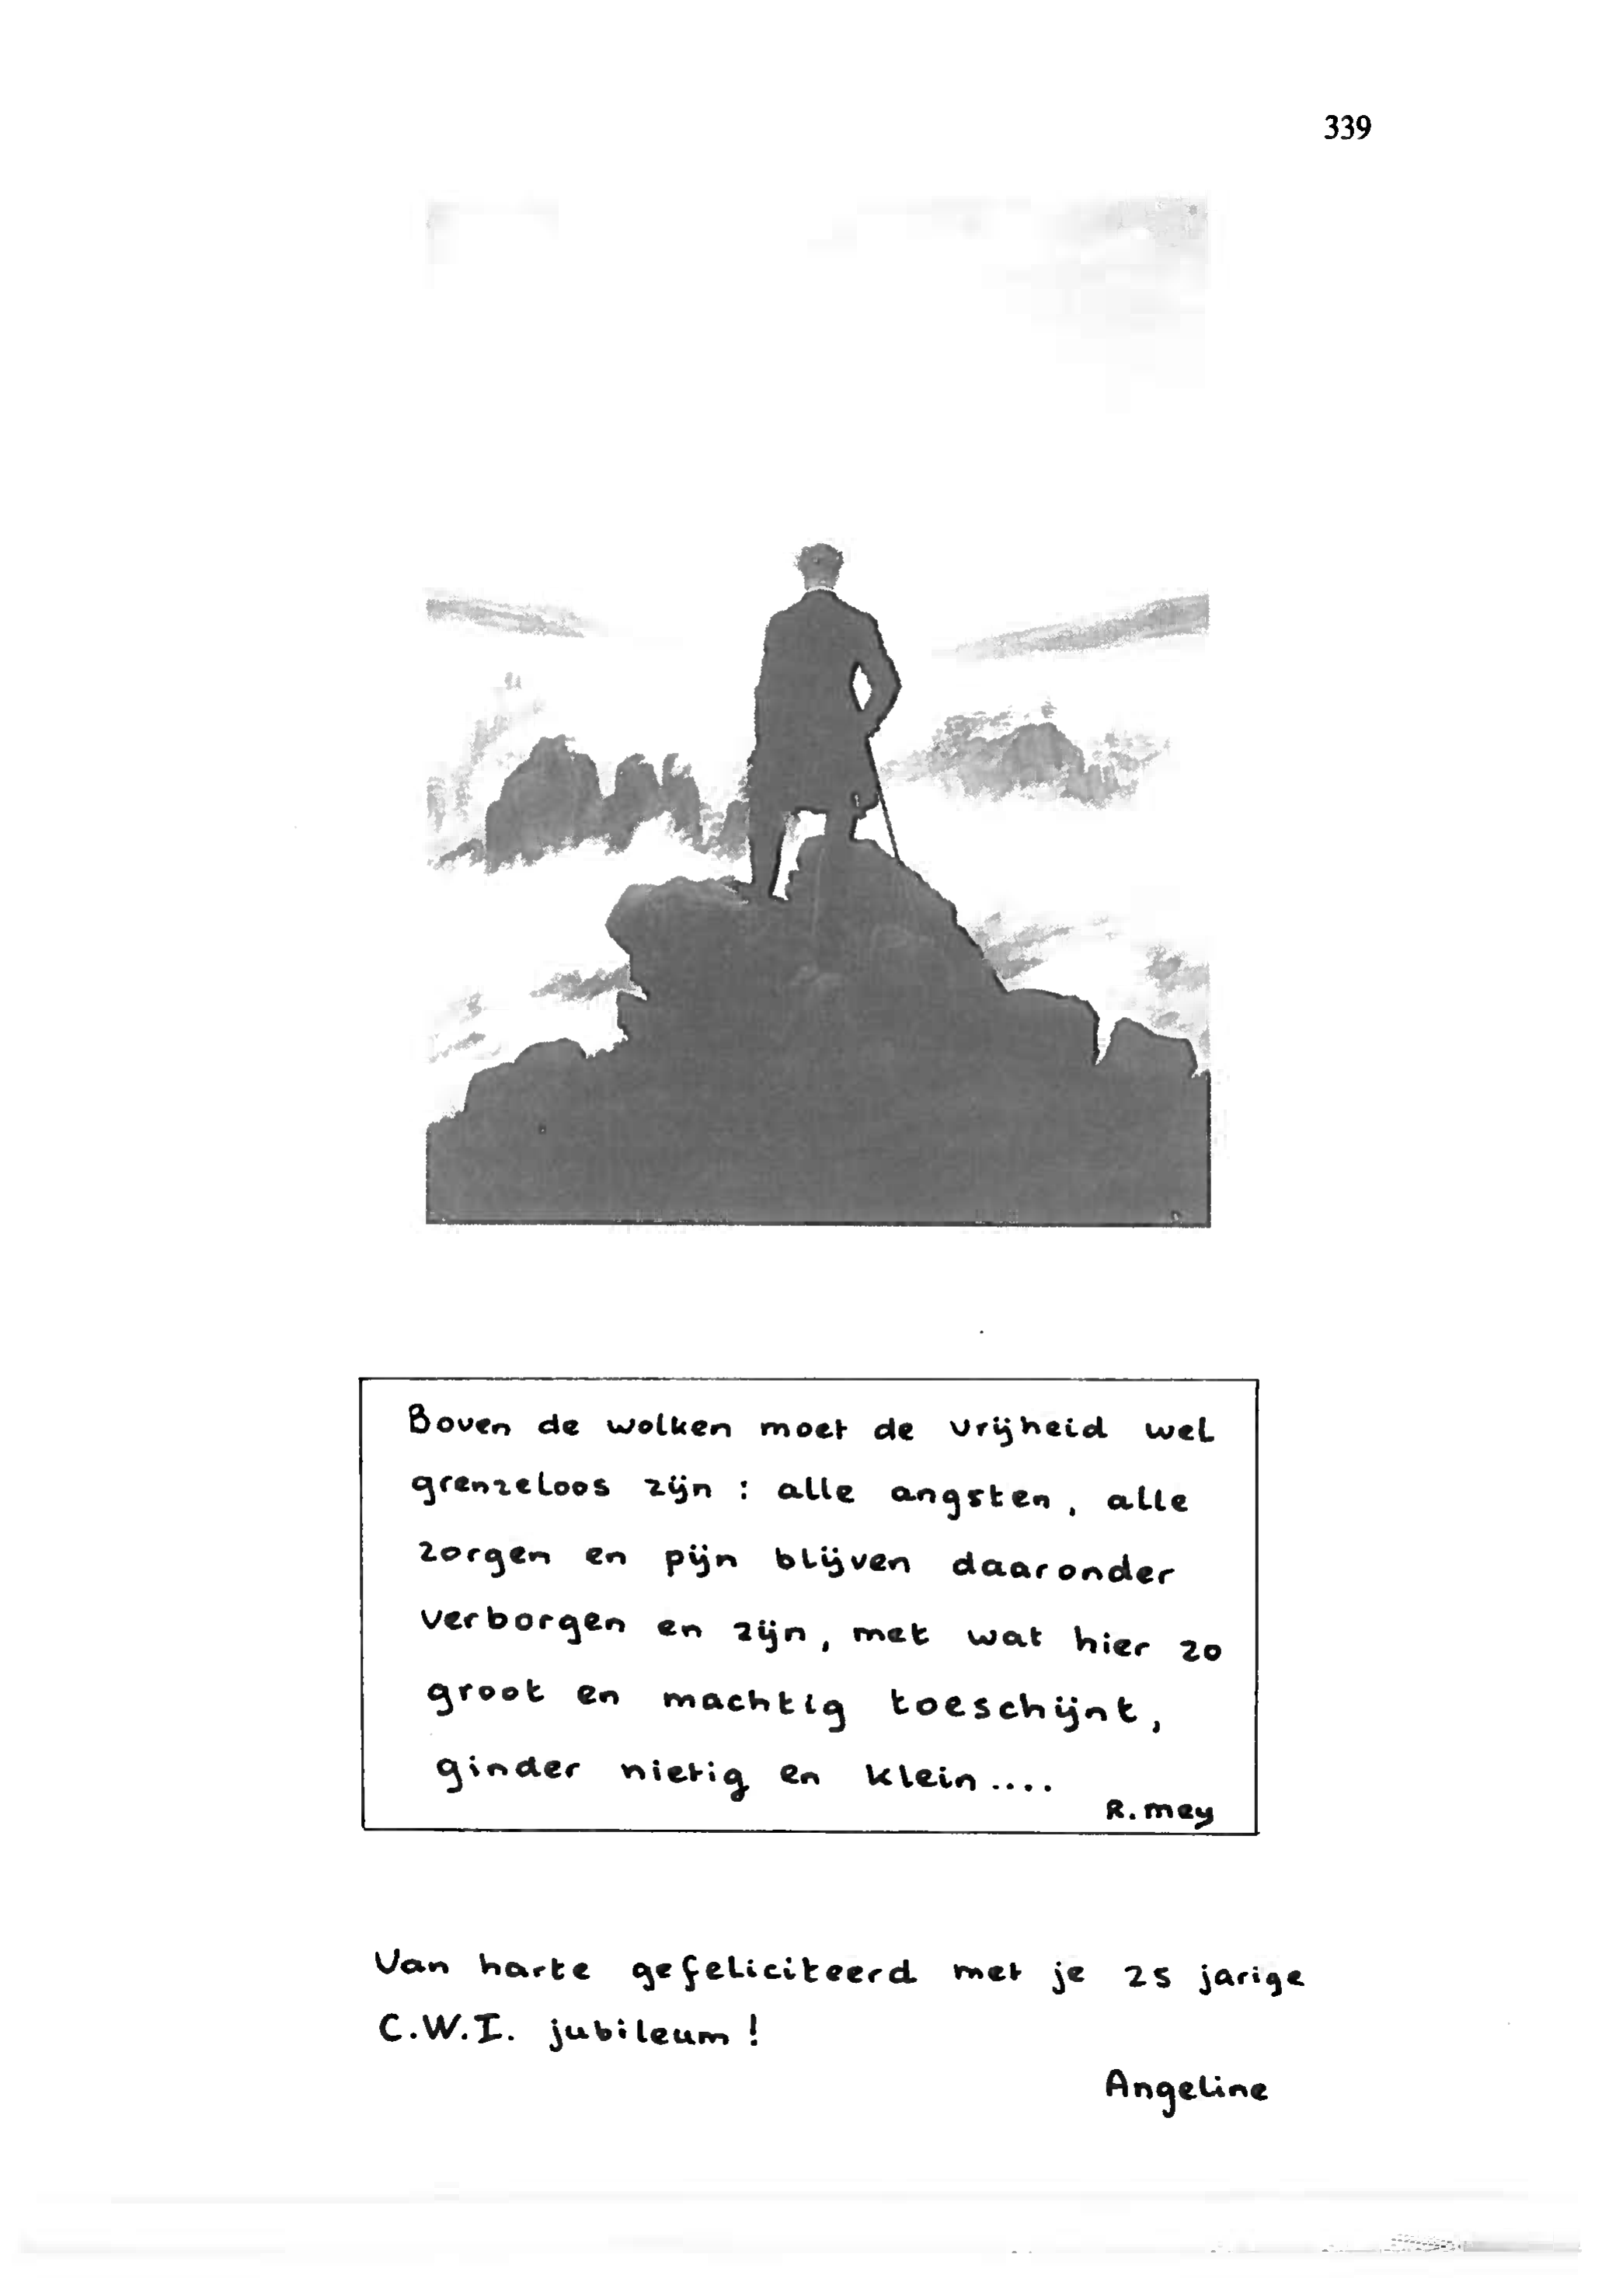 339
Boven de wolken moet de vrijheid wel
grenzeloos zijn : alle angsten, alle
zorgen en pijn blijven daaronder
verborgen en zijn, met wat hier zo
groot en machtig toeschijnt,
ginder nietig en klein....
R. mey
Van harte gefeliciteerd met je 25 jarige
C.W.I. jubileum !
Angeline